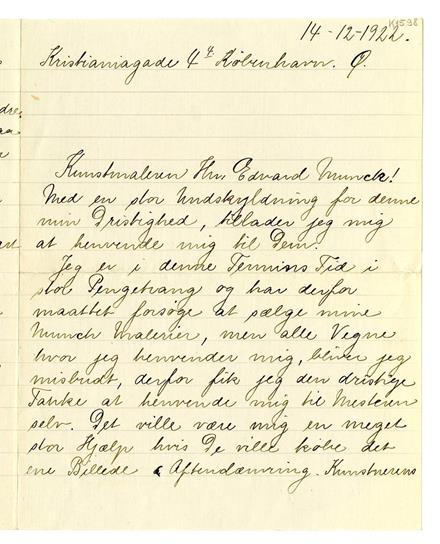 K4598
14-12-1922.
Kristianiagade 4⁴ København. Ø.
Kunstmaleren Hrr. Edvard Munck!
Med en stor Undskyldning for denne
min Dristighed, tillader jeg mig
at henvende mig til Dem.
Jeg er i denne Termins Tid i
stor Pengetrang og har derfor
maattet forsøge at sælge mine
Munch Malerier, men alle Vegne
hvor jeg henvender mig, bliver jeg
misbudt, derfor fik jeg den dristige
Tanke at henvende mig til Mesteren
selv. Det ville være mig en meget
stor Hjælp hvis De ville købe det
ene Billede Aftendæmring. Kunstnerens